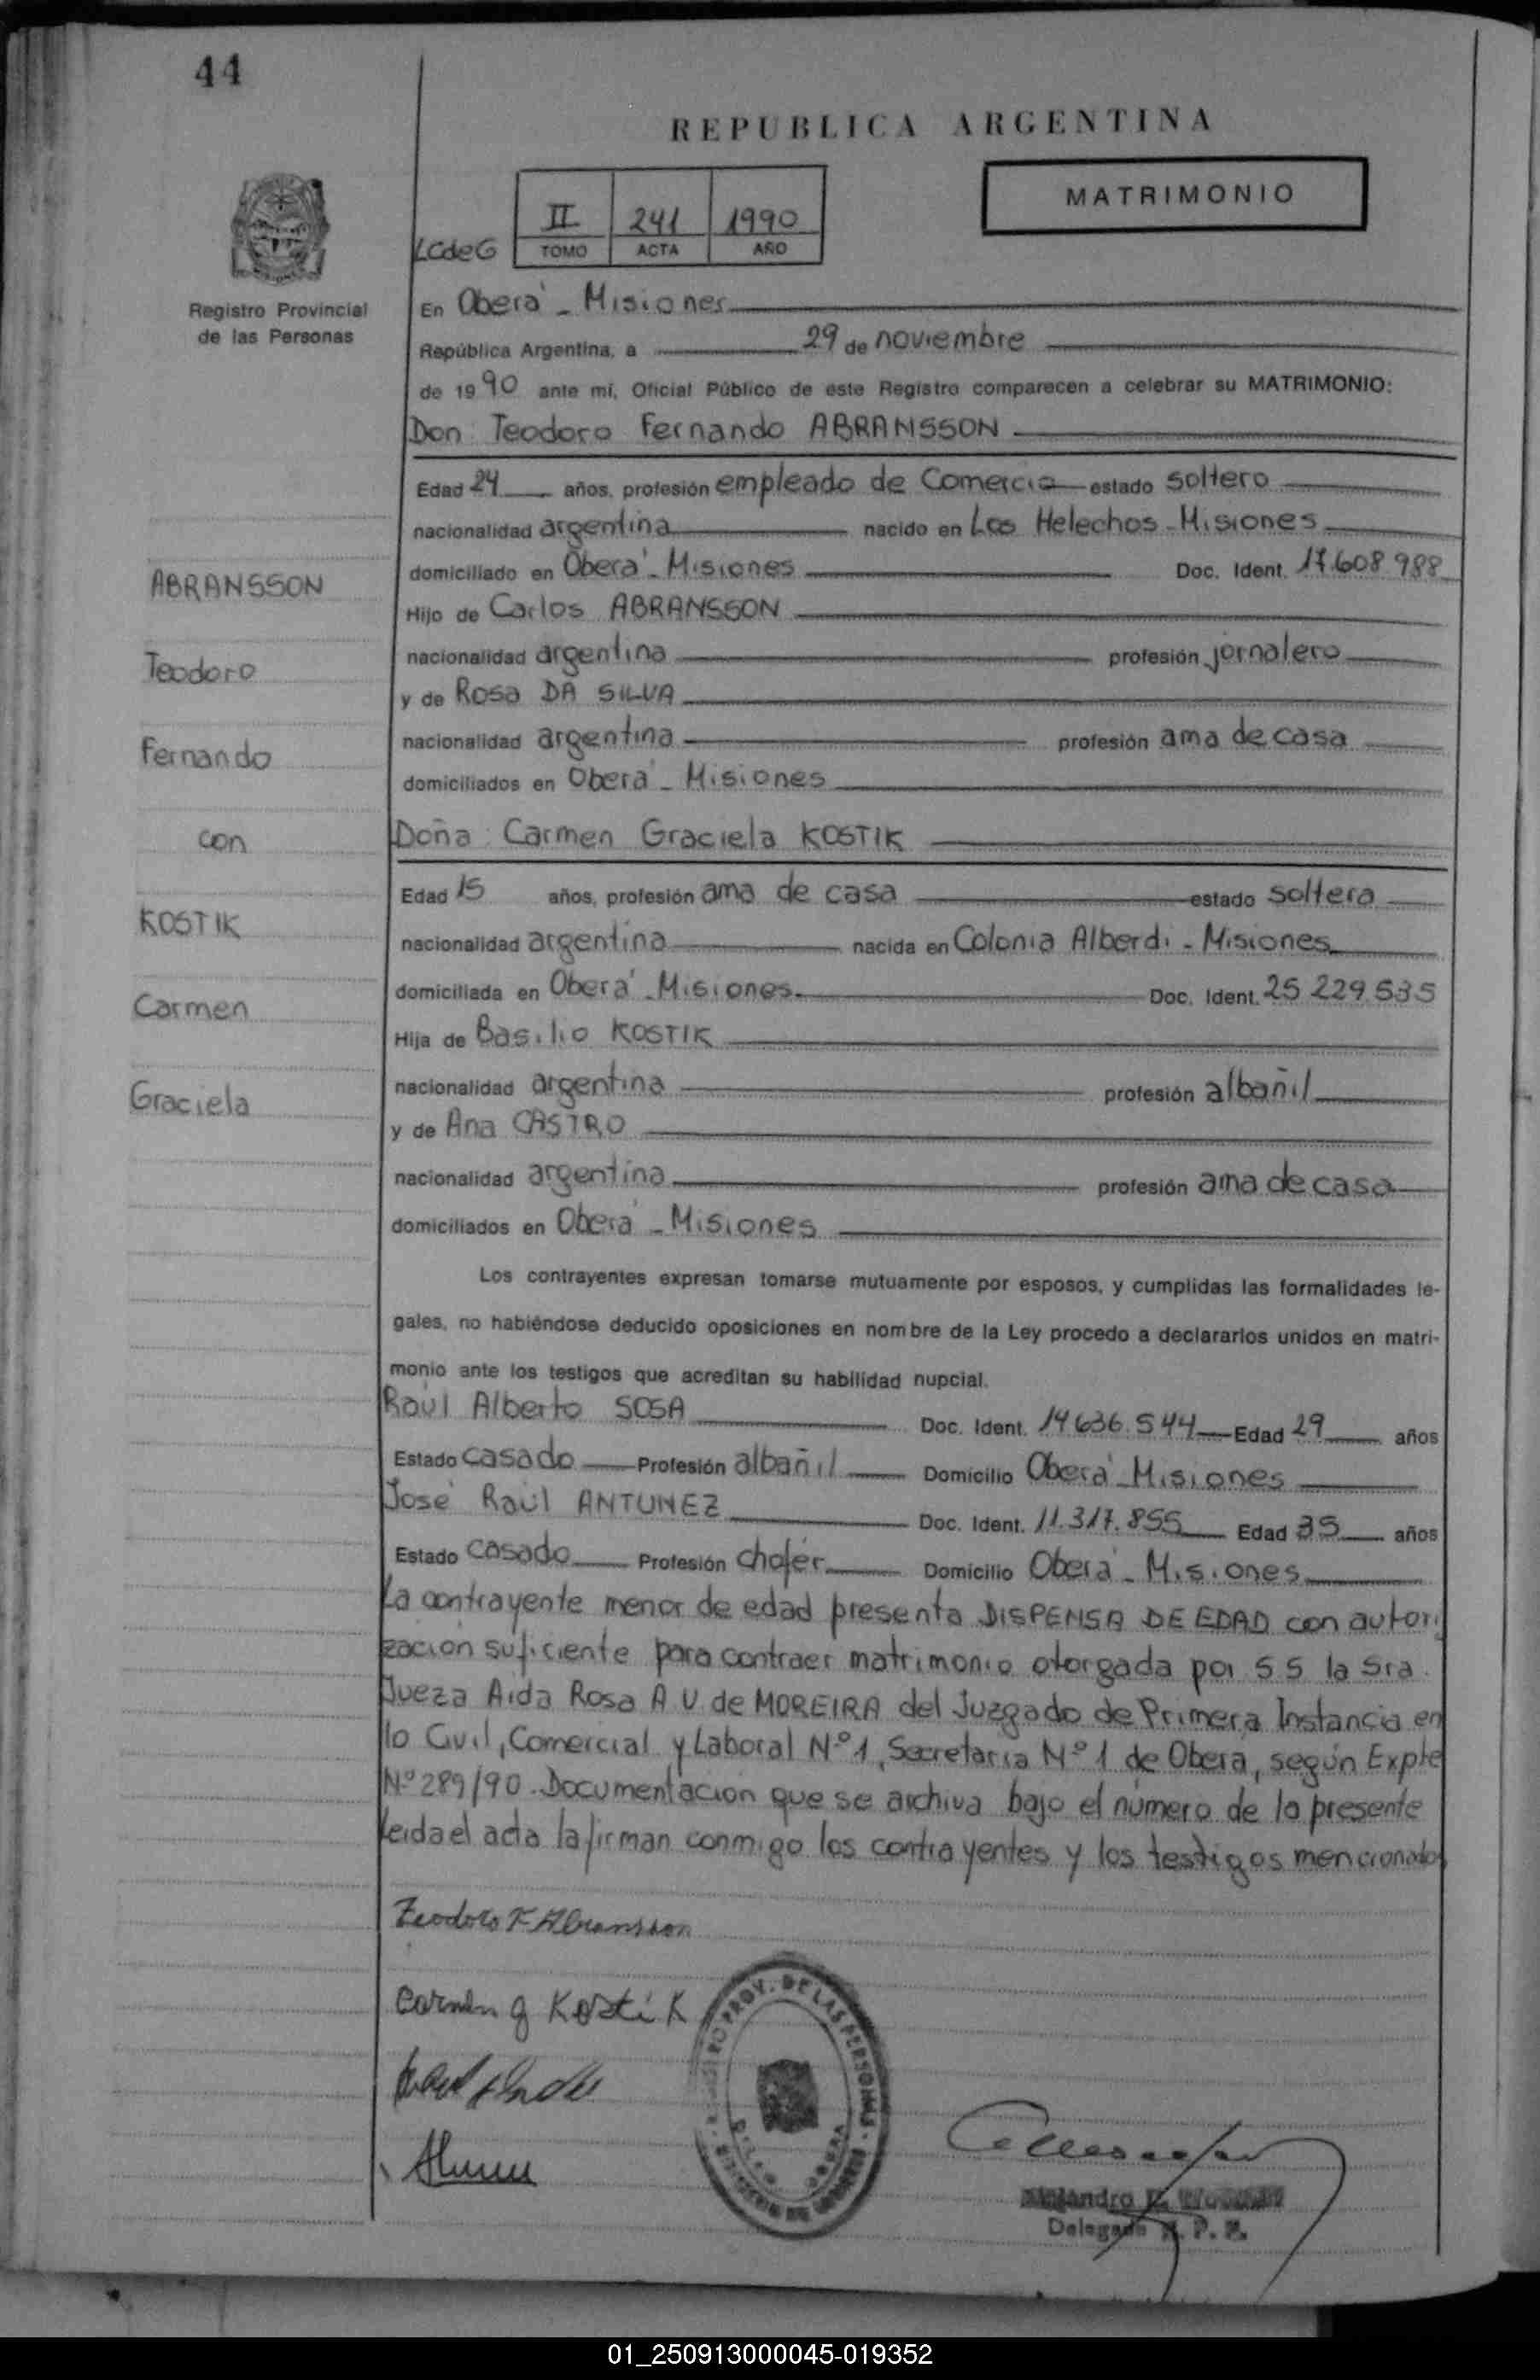 44
REPUBLICA ARGENTINA
MATRIMONIO
II 241 1990
TOMO ACTA AÑO
LCdeG
Registro Provincial
de las Personas
En Oberá - Misiones
República Argentina, a 29 de noviembre
de 1990 ante mí, Oficial Público de este Registro comparecen a celebrar su MATRIMONIO:
Don Teodoro Fernando ABRANSSON
Edad 24 años, profesión empleado de Comercio estado soltero
nacionalidad argentina nacido en Los Helechos - Misiones
domiciliado en Oberá - Misiones Doc. Ident. 17.608.988
Hijo de Carlos ABRANSSON
nacionalidad argentina profesión jornalero
y de Rosa DA SILVA
nacionalidad argentina profesión ama de casa
domiciliados en Oberá - Misiones
Doña Carmen Graciela KOSTIK
Edad 15 años, profesión ama de casa estado soltera
nacionalidad argentina nacida en Colonia Alberdi - Misiones
domiciliada en Oberá - Misiones Doc. Ident. 25 229 535
Hija de Basilio KOSTIK
nacionalidad argentina profesión albañil
y de Ana CASTRO
nacionalidad argentina profesión ama de casa
domiciliados en Oberá - Misiones
ABRANSSON
Teodoro
Fernando
con
KOSTIK
Carmen
Graciela
Los contrayentes expresan tomarse mutuamente por esposos, y cumplidas las formalidades le-
gales, no habiéndose deducido oposiciones en nombre de la Ley procedo a declararlos unidos en matri-
monio ante los testigos que acreditan su habilidad nupcial.
Raúl Alberto SOSA Doc. Ident. 14 636.544 Edad 29 años
Estado casado Profesión albañil Domicilio Oberá - Misiones
José Raúl ANTUNEZ Doc. Ident. 11.317.855 Edad 35 años
Estado casado Profesión chofer Domicilio Oberá - Misiones
La contrayente menor de edad presenta DISPENSA DE EDAD con autori
zación suficiente para contraer matrimonio otorgada por S S la Sra.
Jueza Aida Rosa A U de MOREIRA del Juzgado de Primera Instancia en
lo Civil, Comercial y Laboral Nº 1, Secretaría Nº 1 de Oberá, según Expte
Nº 289/90. Documentación que se archiva bajo el número de la presente
leída el acta la firman conmigo los contrayentes y los testigos mencionados
Teodoro F Abransson
Carmen G Kostik
PROV. DE LAS PERSONAS
OBERA
Alejandro
Delegado R. P. P.
01_250913000045-019352